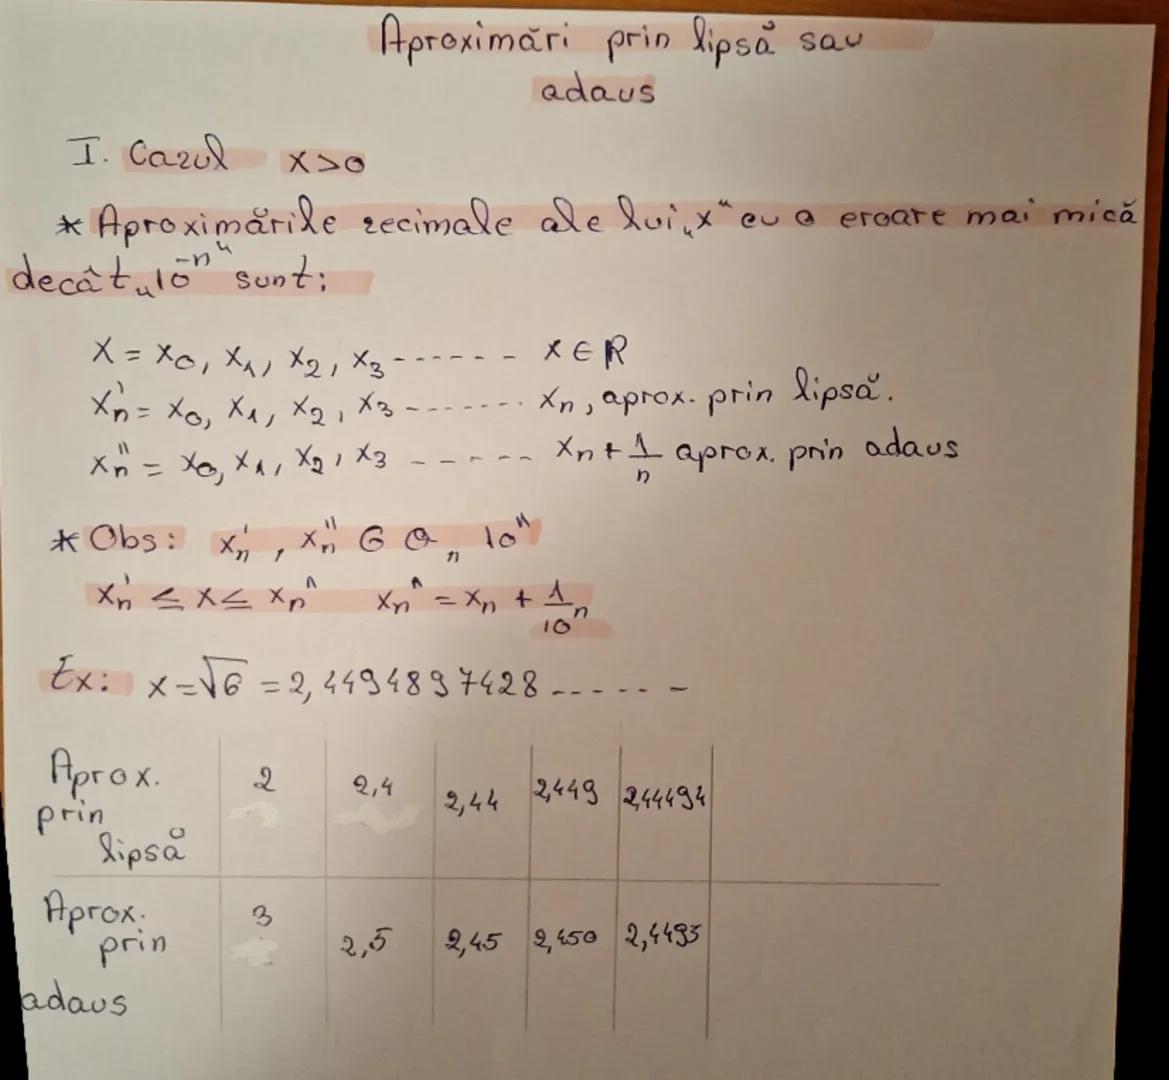 Aproximări prin lipsă sau
adaus
I. Cazul x>0
* Aproximările zecimale ale lui „x" cu o eroare mai mică
decât „10⁻ⁿ" sunt:
X = x₀, x₁, x₂, x₃ ------ x ∈ R
xₙ' = x₀, x₁, x₂, x₃ ------- xₙ, aprox. prin lipsă.
xₙ'' = x₀, x₁, x₂, x₃ ------ xₙ + 1/n aprox. prin adaus
* Obs: xₙ', xₙ'' ∈ Q ₙ 10ⁿ
xₙ' ≤ x ≤ xₙ^ xₙ^ = xₙ + 1/10ⁿ
Ex: x = √6 = 2,4494897428 ------
Aprox. prin lipsă 2 2,4 2,44 2,449 2,44494
Aprox. prin adaus 3 2,5 2,45 2,450 2,4495